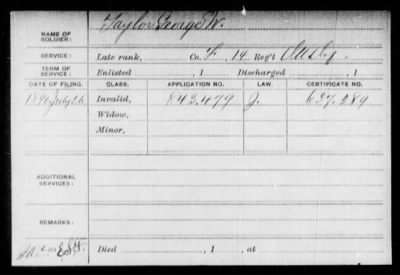 NAME OF SOLDIER: Taylor George W.
SERVICE: Late rank, Co. F, 14 Reg't
TERM OF SERVICE: Enlisted , 1 Discharged , 1
DATE OF FILING. CLASS. APPLICATION NO. LAW. CERTIFICATE NO.
1890 July 26 Invalid, 843,479 J. 637,289
Widow,
Minor,
ADDITIONAL SERVICES:
REMARKS:
Died , 1 , at